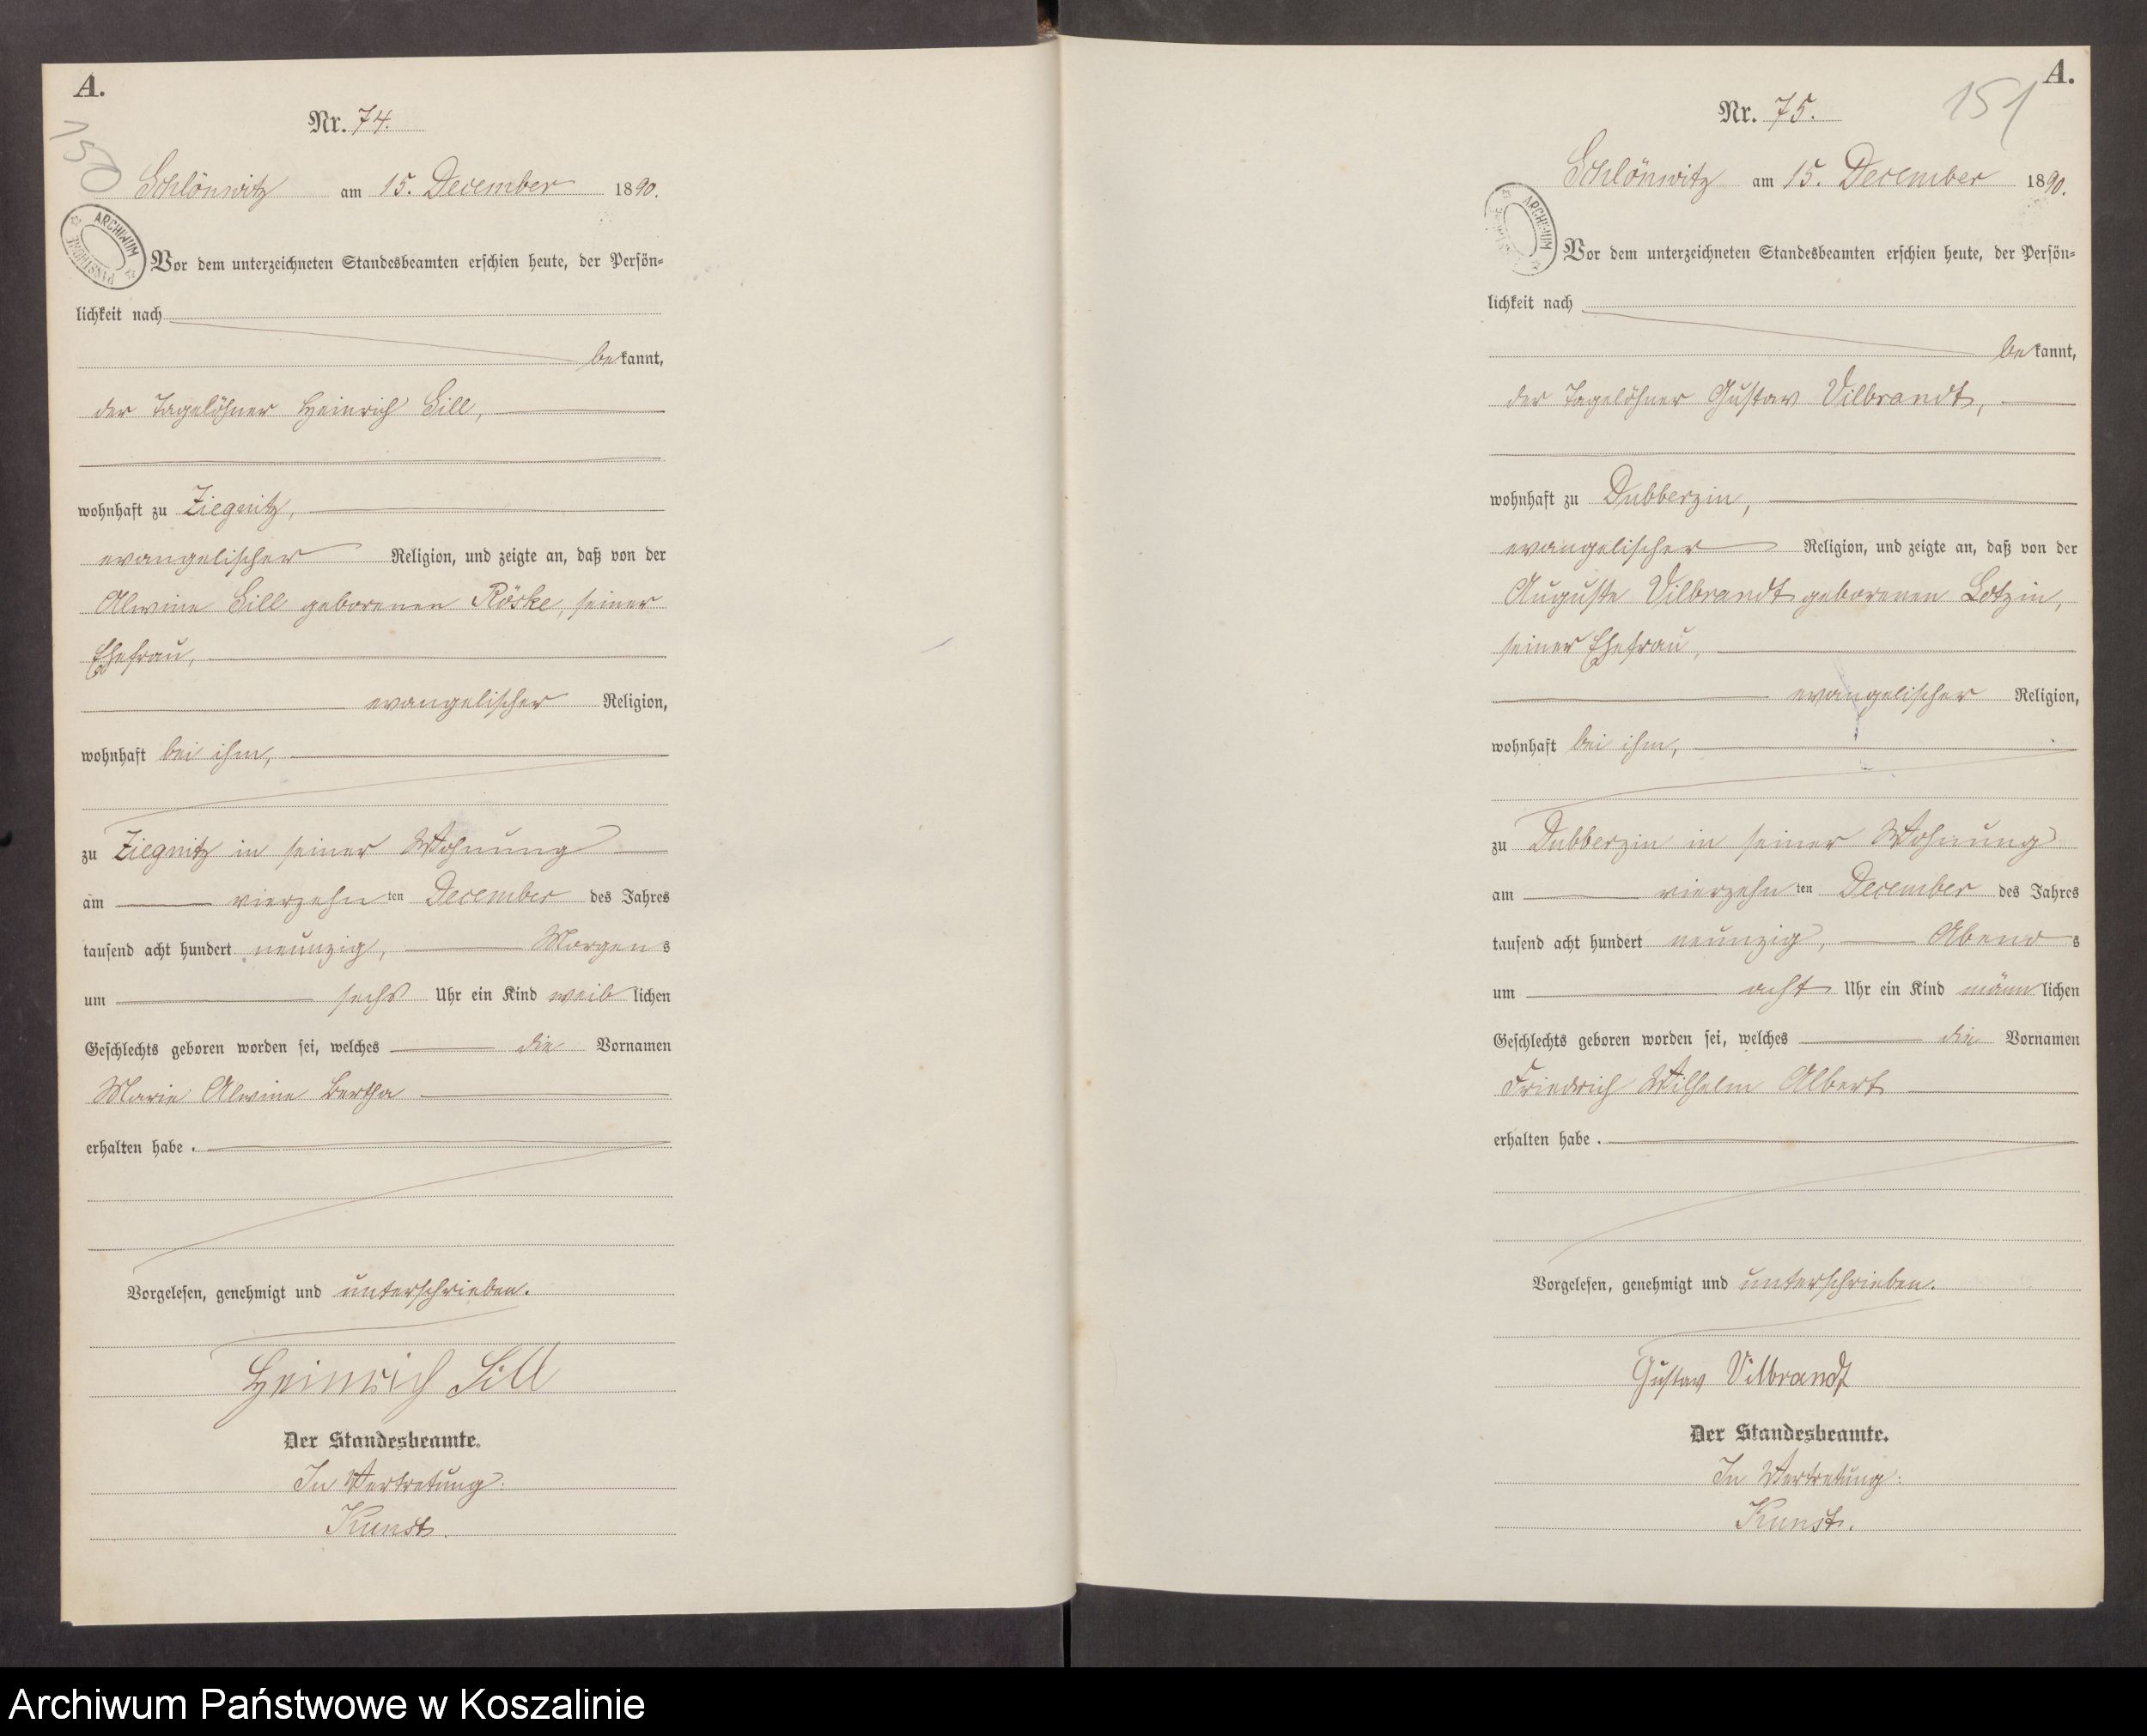 A.
Nr. 74.
150
Schlönwitz am 15. December 1890.
ARCHIWUM PAŃSTWOWE
Vor dem unterzeichneten Standesbeamten erschien heute, der Persön=
lichkeit nach
bekannt,
der Tagelöhner Heinrich Sill,
wohnhaft zu Ziegnitz,
evangelischer Religion, und zeigte an, daß von der
Alwine Sill geborenen Röske, seiner
Ehefrau,
evangelischer Religion,
wohnhaft bei ihm,
zu Ziegnitz in seiner Wohnung
am vierzehnten December des Jahres
tausend acht hundert neunzig, Morgens
um sechs Uhr ein Kind weiblichen
Geschlechts geboren worden sei, welches die Vornamen
Marie Alwine Bertha
erhalten habe.
Vorgelesen, genehmigt und unterschrieben.
Heinrich Sill
Der Standesbeamte.
In Vertretung:
Kunst.
A.
151
Nr. 75.
Schlönwitz am 15. December 1890.
ARCHIWUM
Vor dem unterzeichneten Standesbeamten erschien heute, der Persön=
lichkeit nach
bekannt,
der Tagelöhner Gustav Vilbrandt,
wohnhaft zu Dubberzin,
evangelischer Religion, und zeigte an, daß von der
Auguste Vilbrandt geborenen Lotzin,
seiner Ehefrau,
evangelischer Religion,
wohnhaft bei ihm,
zu Dubberzin in seiner Wohnung
am vierzehnten December des Jahres
tausend acht hundert neunzig, Abends
um acht Uhr ein Kind männlichen
Geschlechts geboren worden sei, welches die Vornamen
Friedrich Wilhelm Albert
erhalten habe.
Vorgelesen, genehmigt und unterschrieben.
Gustav Vilbrandt
Der Standesbeamte.
In Vertretung:
Kunst.
Archiwum Państwowe w Koszalinie